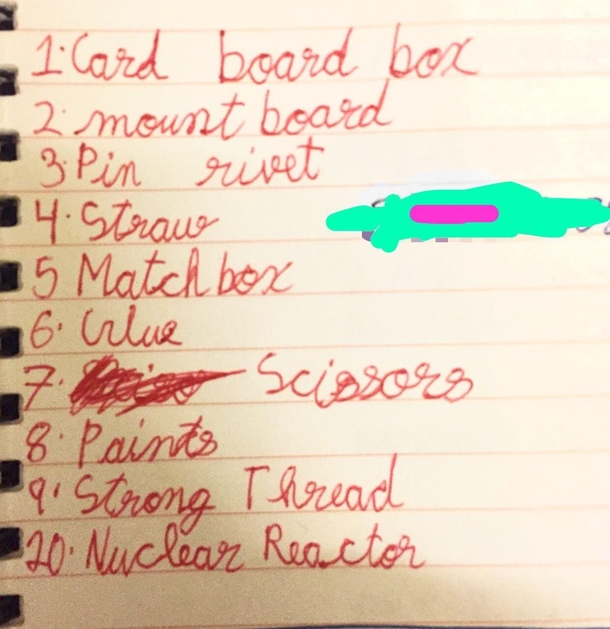 1. Card board box
2. mount board
3. Pin rivet
4. Straw
5 Matchbox
6. Glue
7. Scissors
8. Paints
9. Strong Thread
10. Nuclear Reactor